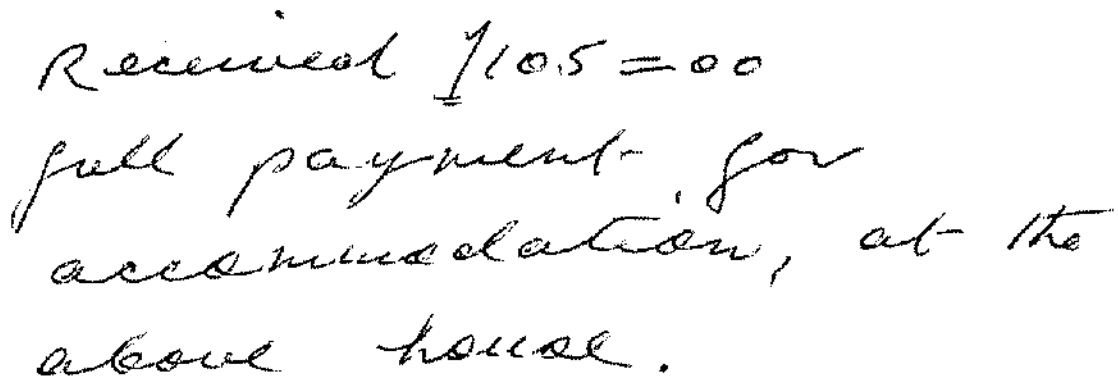 Received £105=00
full payment for
accommodation, at the
above house.